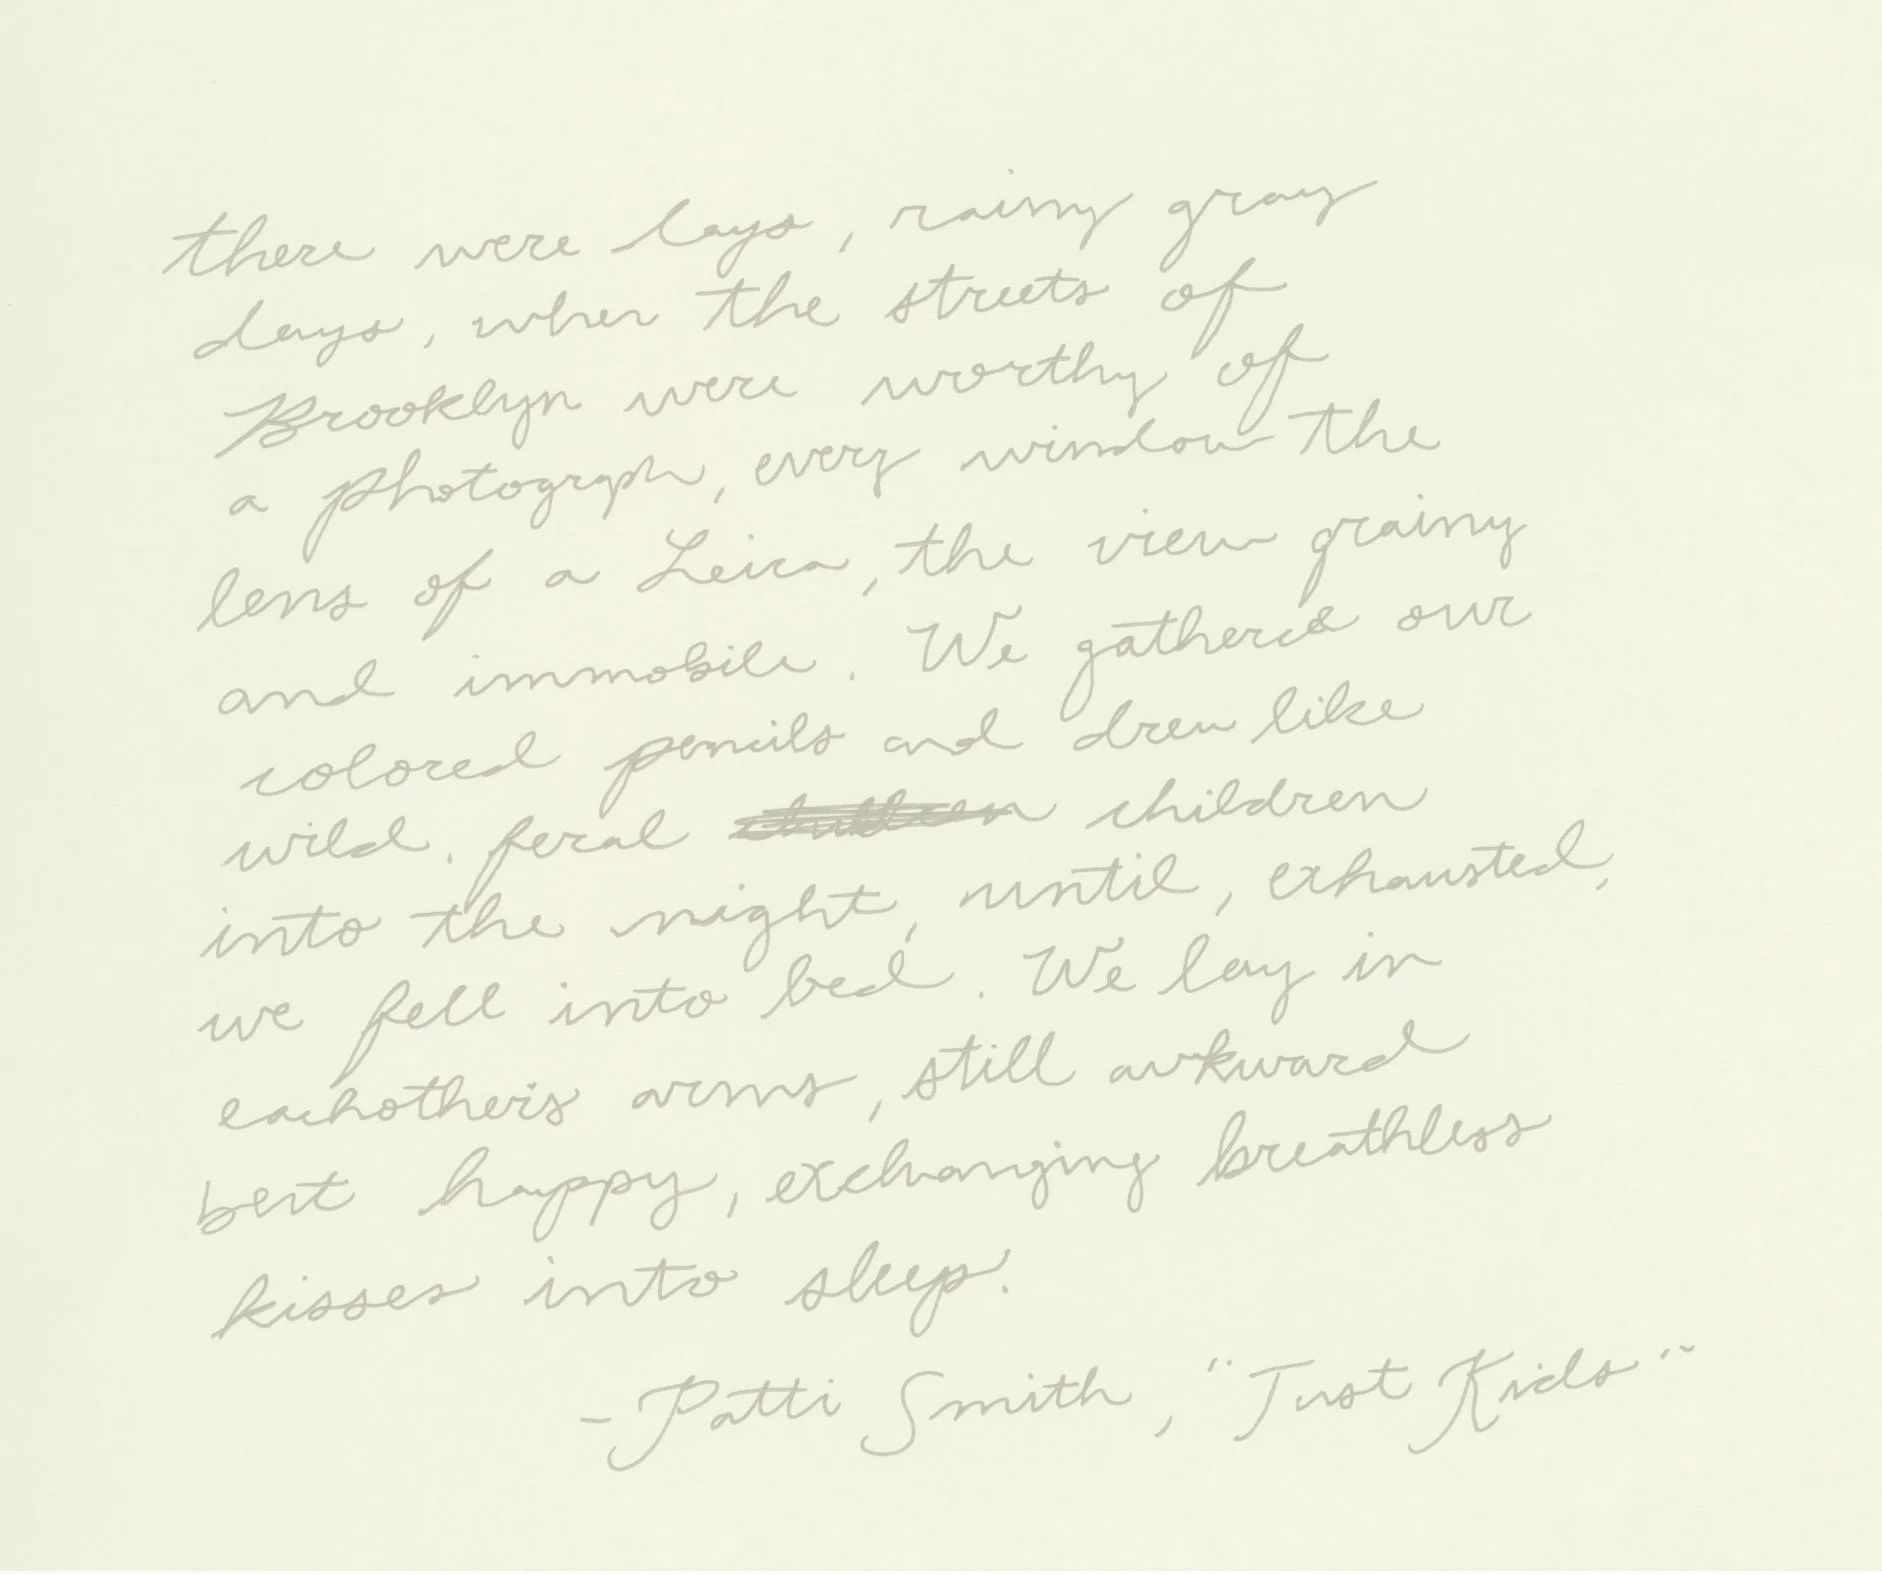 there were days, rainy gray
days, when the streets of
Brooklyn were worthy of
a photogrph, every window the
lens of a Leica, the view grainy
and immobile. We gathered our
colored pencils and drew like
wild, feral children
into the night, until, exhausted,
we fell into bed. We lay in
eachother's arms, still awkward
bert happy, exchanging breathless
kisses into sleep.
- Patti Smith, "Just Kids"